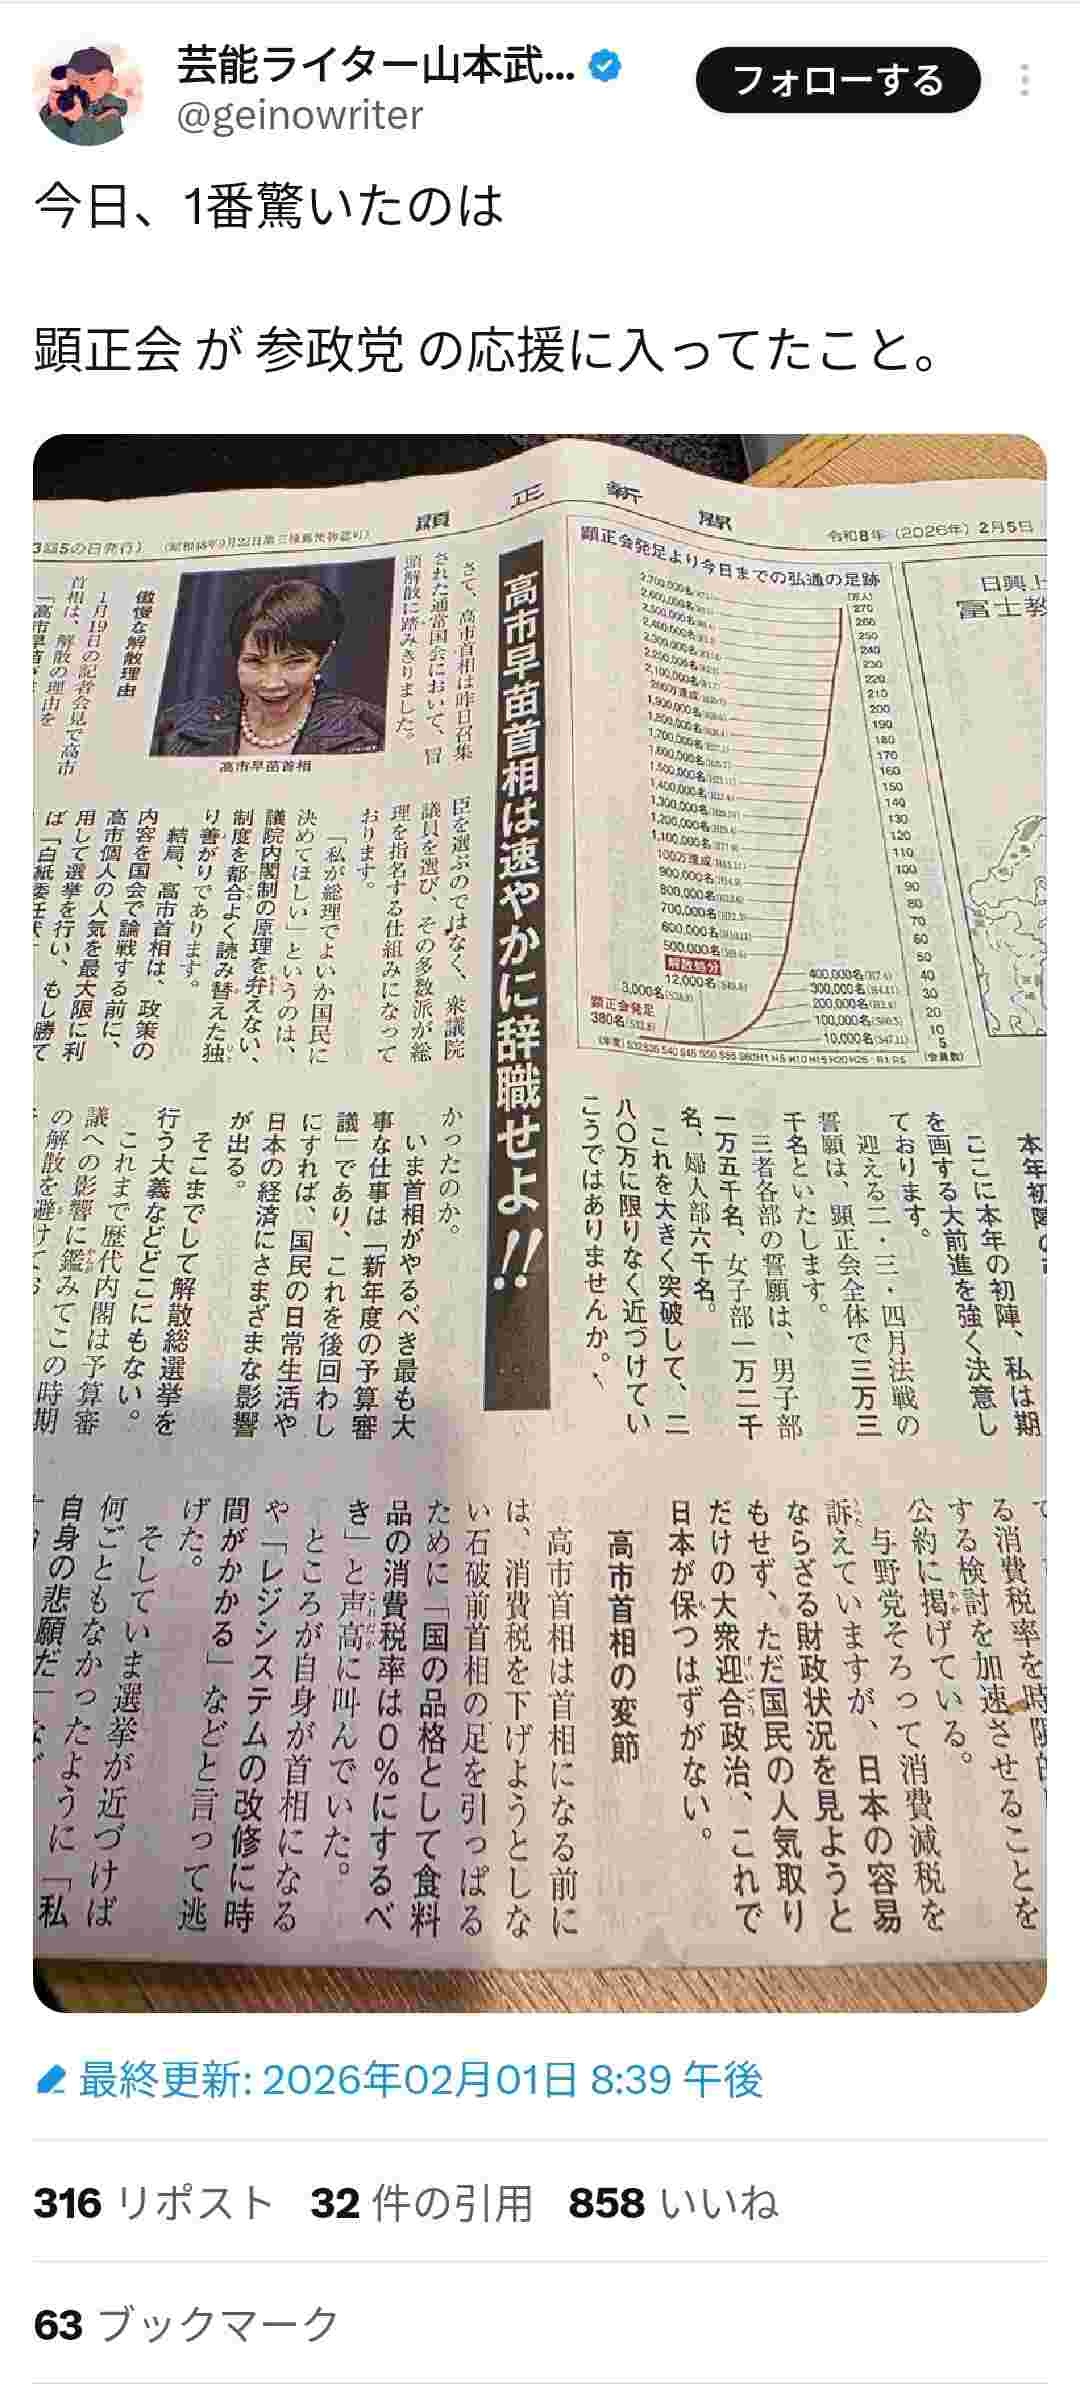 芸能ライター山本武...
@geinowriter
フォローする
今日、1番驚いたのは
顕正会 が 参政党 の応援に入ってたこと。
顕正新聞
令和8年（2026年）2月5日
3回5の日発行）
（昭和48年9月22日第三種郵便物認可）
日興上
富士教
顕正会発足より今日までの弘通の足跡
2,700,000名
2,600,000名
2,500,000名
2,400,000名
2,300,000名
2,200,000名
2,100,000名
200万達成
1,900,000名
1,800,000名
1,700,000名
1,600,000名
1,500,000名
1,400,000名
1,300,000名
1,200,000名
1,100,000名
100万達成
900,000名
800,000名
700,000名
600,000名
500,000名
解散処分
12,000名
3,000名
顕正会発足
380名
400,000名
300,000名
200,000名
100,000名
10,000名
（万人）
270
260
250
240
230
220
210
200
190
180
170
160
150
140
130
120
110
100
90
80
70
60
50
40
30
20
10
5
（会員数）
（年度）
本年初陣の
ここに本年の初陣、私は期
を画する大前進を強く決意し
ております。
迎える二・三・四月法戦の
誓願は、顕正会全体で三万三
千名といたします。
三者各部の誓願は、男子部
一万五千名、女子部一万二千
名、婦人部六千名。
これを大きく突破して、二
八〇万に限りなく近づけてい
こうではありませんか。
高市早苗首相は速やかに辞職せよ!!
さて、高市首相は昨日召集
された通常国会において、冒
頭解散に踏みきりました。
高市早苗首相
傲慢な解散理由
1月19日の記者会見で高市
首相は、解散の理由を
「高市早苗が
臣を選ぶのではなく、衆議院
議員を選び、その多数派が総
理を指名する仕組みになって
おります。
「私が総理でよいか国民に
決めてほしい」というのは、
議院内閣制の原理を弁えない、
制度を都合よく読み替えた独
り善がりであります。
結局、高市首相は、政策の
内容を国会で論戦する前に、
高市個人の人気を最大限に利
用して選挙を行い、もし勝て
ば「白紙委任状」
かったのか。
いま首相がやるべき最も大
事な仕事は「新年度の予算審
議」であり、これを後回わし
にすれば、国民の日常生活や
日本の経済にさまざまな影響
が出る。
そこまでして解散総選挙を
行う大義などどこにもない。
これまで歴代内閣は予算審
議への影響に鑑みてこの時期
の解散を避けてお
る消費税率を時限的
する検討を加速させることを
公約に掲げている。
与野党そろって消費減税を
訴えていますが、日本の容易
ならざる財政状況を見ようと
もせず、ただ国民の人気取り
だけの大衆迎合政治、これで
日本が保つはずがない。
高市首相の変節
高市首相は首相になる前に
は、消費税を下げようとしな
い石破前首相の足を引っぱる
ために「国の品格として食料
品の消費税率は0％にするべ
き」と声高に叫んでいた。
ところが自身が首相になる
や「レジシステムの改修に時
間がかかる」などと言って逃
げた。
そしていま選挙が近づけば
何ごともなかったように「私
自身の悲願だ」など
最終更新: 2026年02月01日 8:39 午後
316 リポスト 32 件の引用 858 いいね
63 ブックマーク